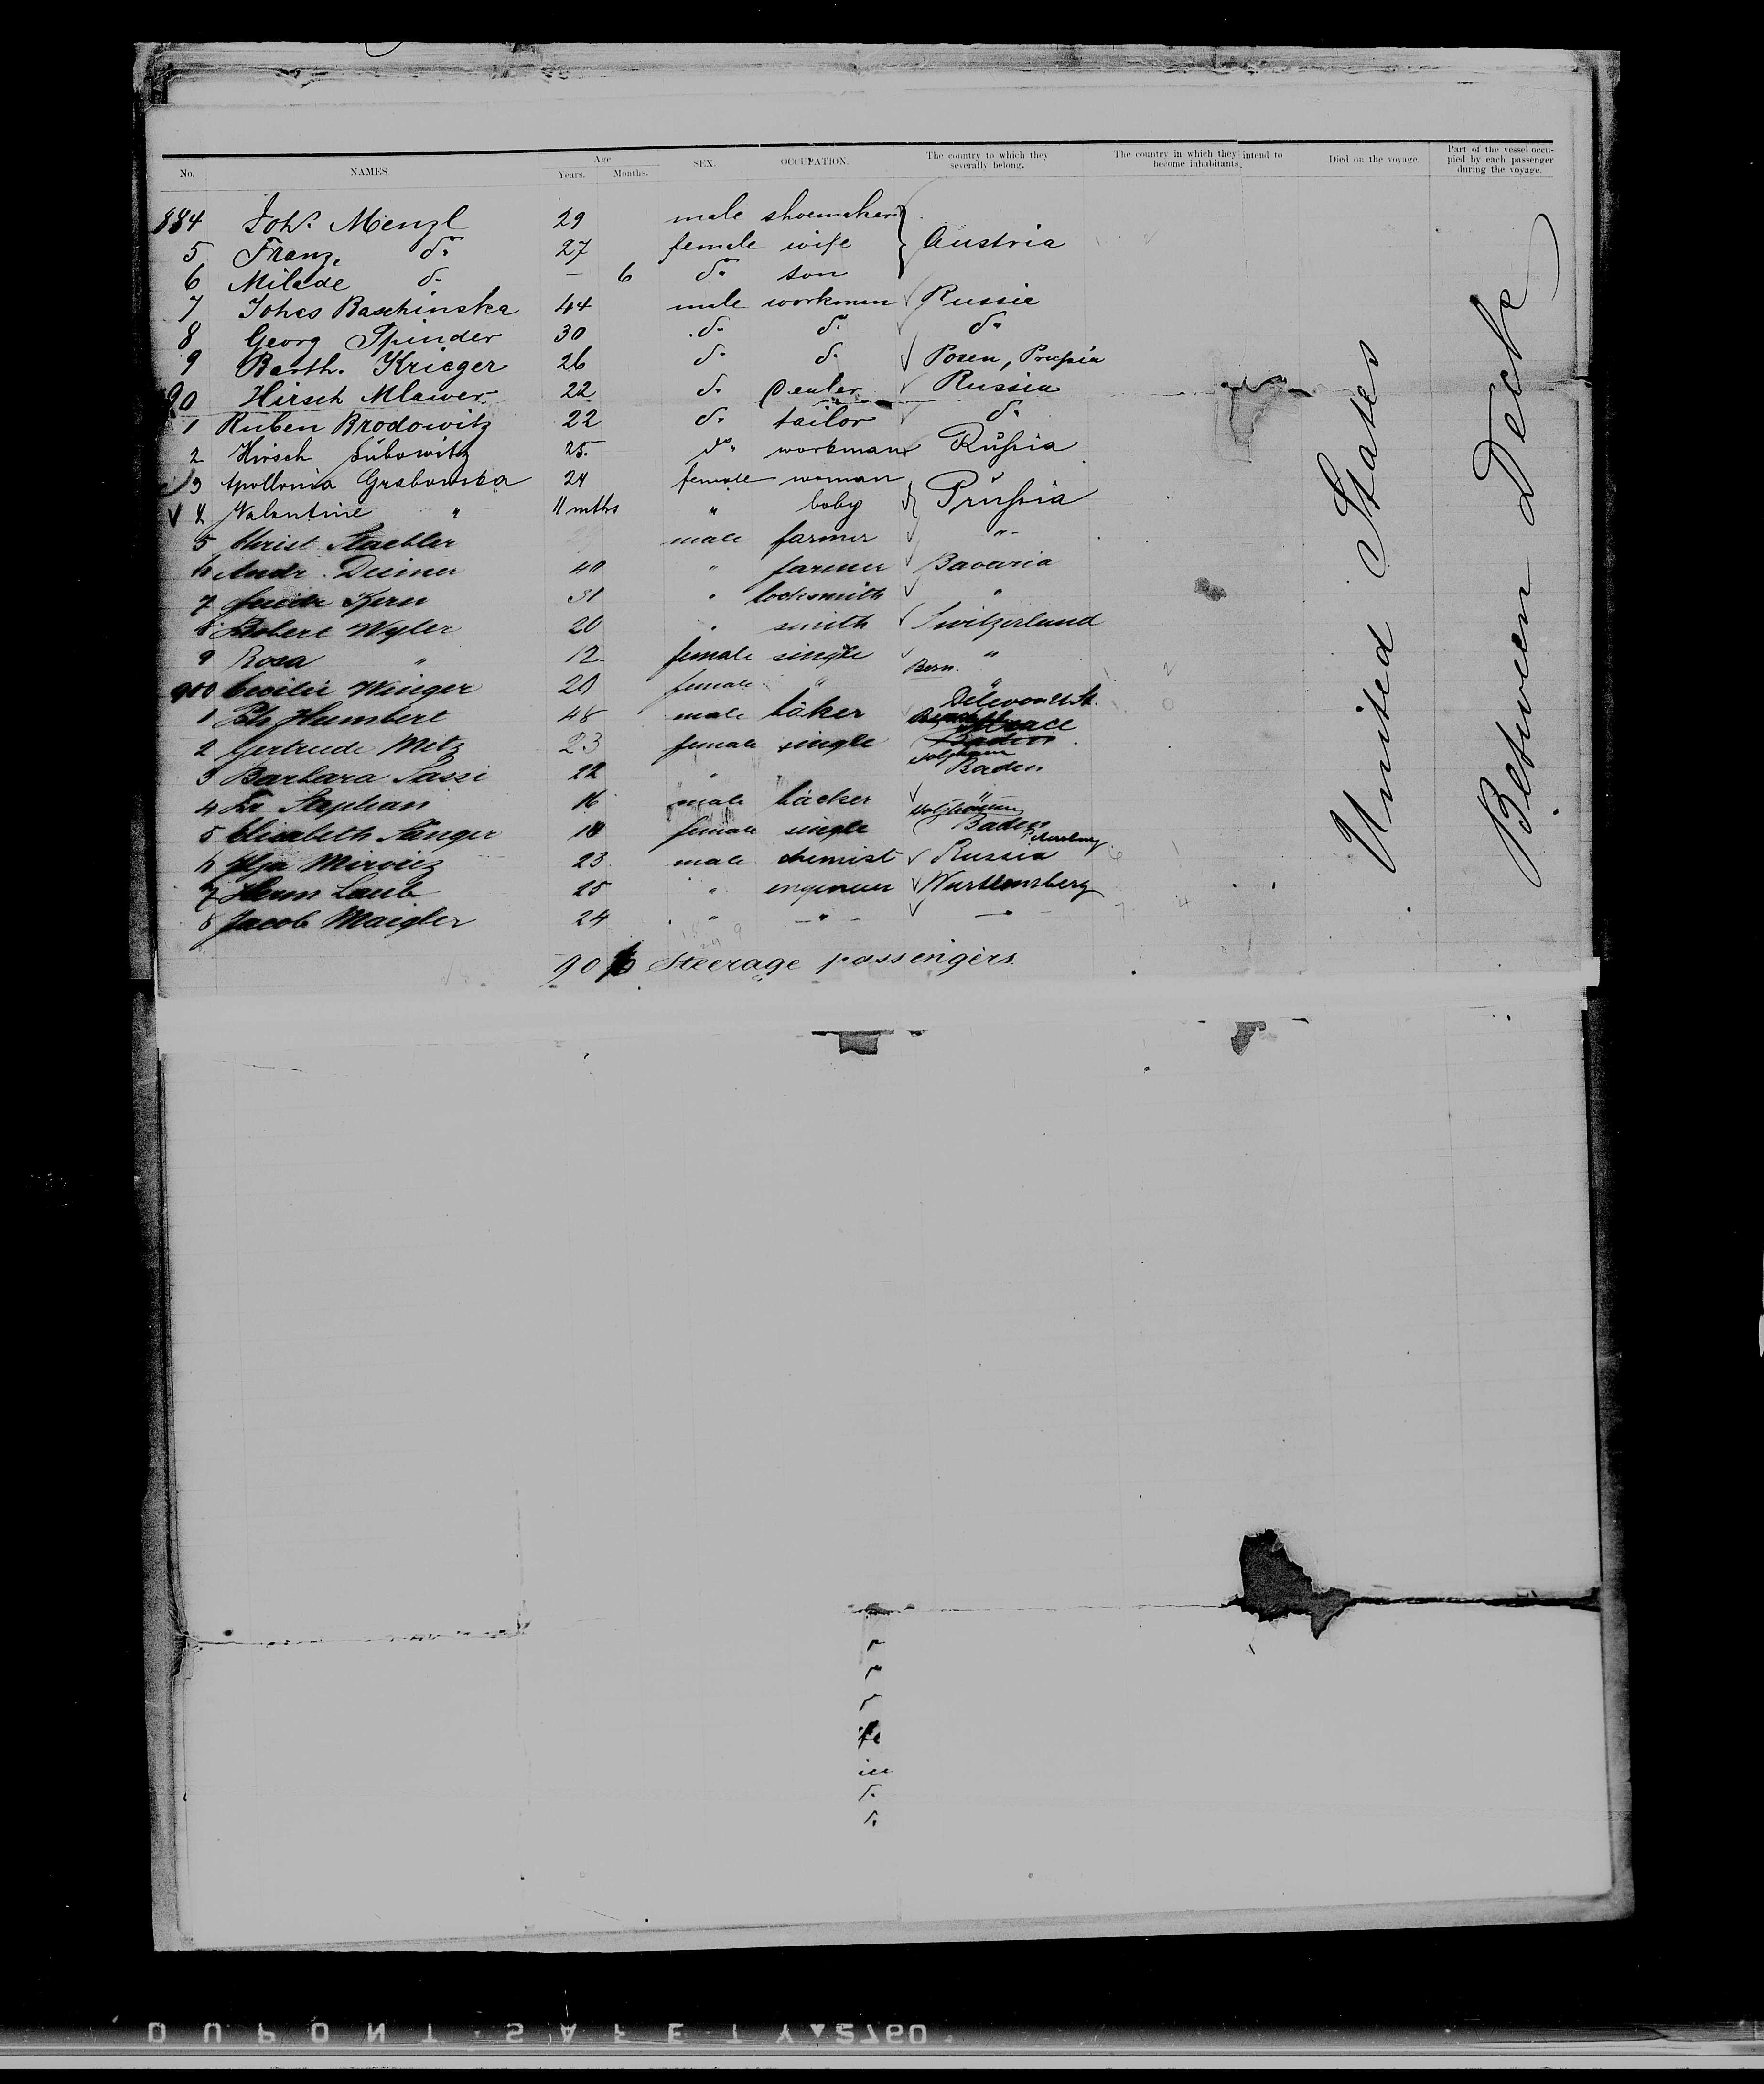 No. NAMES. Age Years. Months. SEX. OCCUPATION. The country to which they severally belong. The country in which they intend to become inhabitants. Died on the voyage. Part of the vessel occupied by each passenger during the voyage.
884 Joh. Menzl 29 male shoemaker
5 Franz. do. 27 female wife Austria
6 Milade do. — 6 do. son
7 Johes Baschinska 44 male workman Russia
8 Georg Spinder 30 do. do. do.
9 Barth. Krieger 26 do. do. Posen, Prussia
90 Hirsch Mlawer 22 do. Dealer Russia
1 Ruben Brodowitz 22 do. tailor do.
2 Hirsch Lubowitz 25. do. workman Russia
3 Apollonia Grabowska 24 female woman
4 Valentine " 11 mths " baby Prussia
5 Christ Staebler male farmer "
6 Andr. Deimer 40 " farmer Bavaria
7 Kern 31 " locksmith "
8 Robert Wyler 20 " smith Switzerland
9 Rosa " 12 female single "
900 Cecilie Winger 20 female " Bern. "
1 Humbert 48 male bäker
2 Gertrude Metz 23 female single Baden
3 Barbara Sassi 22 " " Baden
4 Fr Stephan 16 male bäcker "
5 Elisabeth Sänger 18 female single Baden
6 Ilja Mirvicz 23 male chemist Russia
7 Herm Laub 25 " engineer Wurttemberg
8 Jacob Maegler 24 " " "
United States
Between Deck
90 Steerage passengers.
DUPONT SAFETY 2760